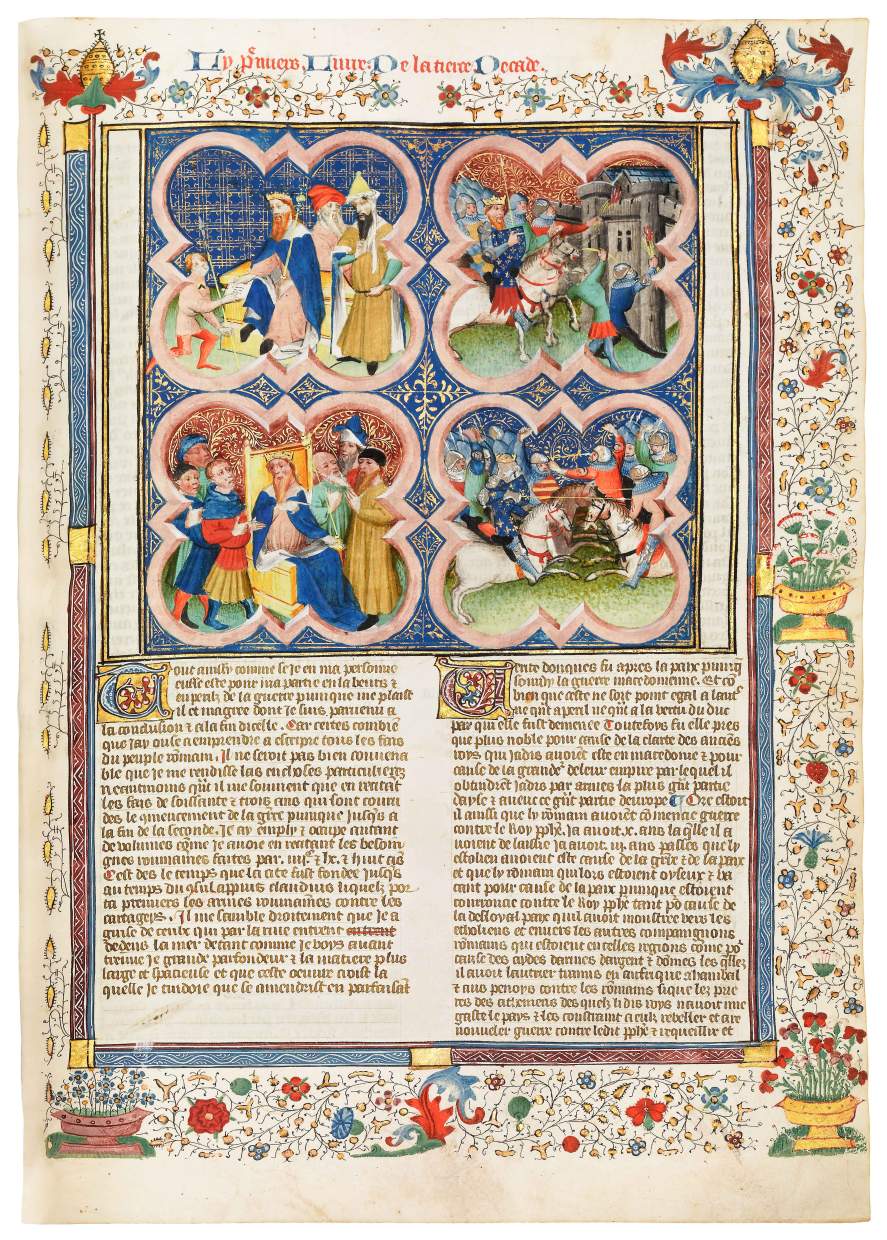 Ly p̃miers Livre De la tierce Decade.
Tout aussy comme se Je en ma personne
eusse este pour ma partie en la beurs ⁊
en peril de la guerre punique me plaist
il et magree dont Je suis parvenu a
la conclusion ⁊ a la fin dicelle. Car certes combiẽ
que Jay ouse a emprendre a escripre tous les fais
du peuple rõmain. Il ne seroit pas bien convena
ble que Je me rendisse las en choses particulieres
neantmoins qũt il me souvient que en recitãt
les fais de soissante ⁊ trois ans qui sont couru
des le cõmencement de la gẽre punique Jusqs a
la fin de la seconde. Je ay emply ⁊ ocupe autant
de volumes cõme Je avoie en recitant les besoin
gnes rommaines faites par. iiijc. ⁊ lx. ⁊ huit ãs
Cest des le temps que la cite fust fondee Jusqs
au temps du ꝯsul appius claudius liquelz por
ta premiers les armes rommaines contre les
cartagẽs. Il me semble droitement que Je a
guise de ceulx qui par la rive entrent
dedens la mer de tant comme Je voys avant
treuve Je grande parfondeur ⁊ la matiere plus
large et spacieuse et que ceste oeuvre croist la
quelle Je cuidoie que se amendrist en parfaisãt
Vente donques fu apres la paix puniq̃
la guerre macedonienne. Et cõ
bien que ceste ne soit point egal a lautr̃
ne qũt a peril ne qũt a la vertu du duc
par qui elle fust demenee Toutefoys fu elle pres
que plus noble pour cause de la clarte des anciẽs
roys qui Jadis avoiẽt este en macedoine ⁊ pour
cause de la grandeʳ de leur empire par lequel il
obtindrẽt Jadis par armes la plus gñt partie
dayse ⁊ avuec ce gñt partie deurope ¶ Ore estoit
il ainsi que ly rõmain avoiẽt cõmencie guerre
contre le Roy pħe. Ja avoit .x. ans la q̃lle il a
voient delaissie Ja avoit. iij. ans passes que ly
etolien avoient este cause de la gẽre ⁊ de la paix
et que ly rõmain qui lors estoient oyseux ⁊ va
cant pour cause de la paix punique estoient
courroucie contre le Roy pħe tant põ cause de
la desloyal paix quil avoit monstree vers les
etholiens et envers les autres compaignons
rõmains qui estoient en celles regions cõme põ
cause des aydes darmes dargent ⁊ dõmes les q̃lles
il avoit lautrier tramis en aufrique a hanibal
⁊ aus penoys contre les rõmains si que lez prie
res des atheniens des quelz li dis roys navoit mie
gaste le pays ⁊ les constraint a eulx rebeller et a re
nouveler guerre contre ledit pħe ⁊ requeillir et